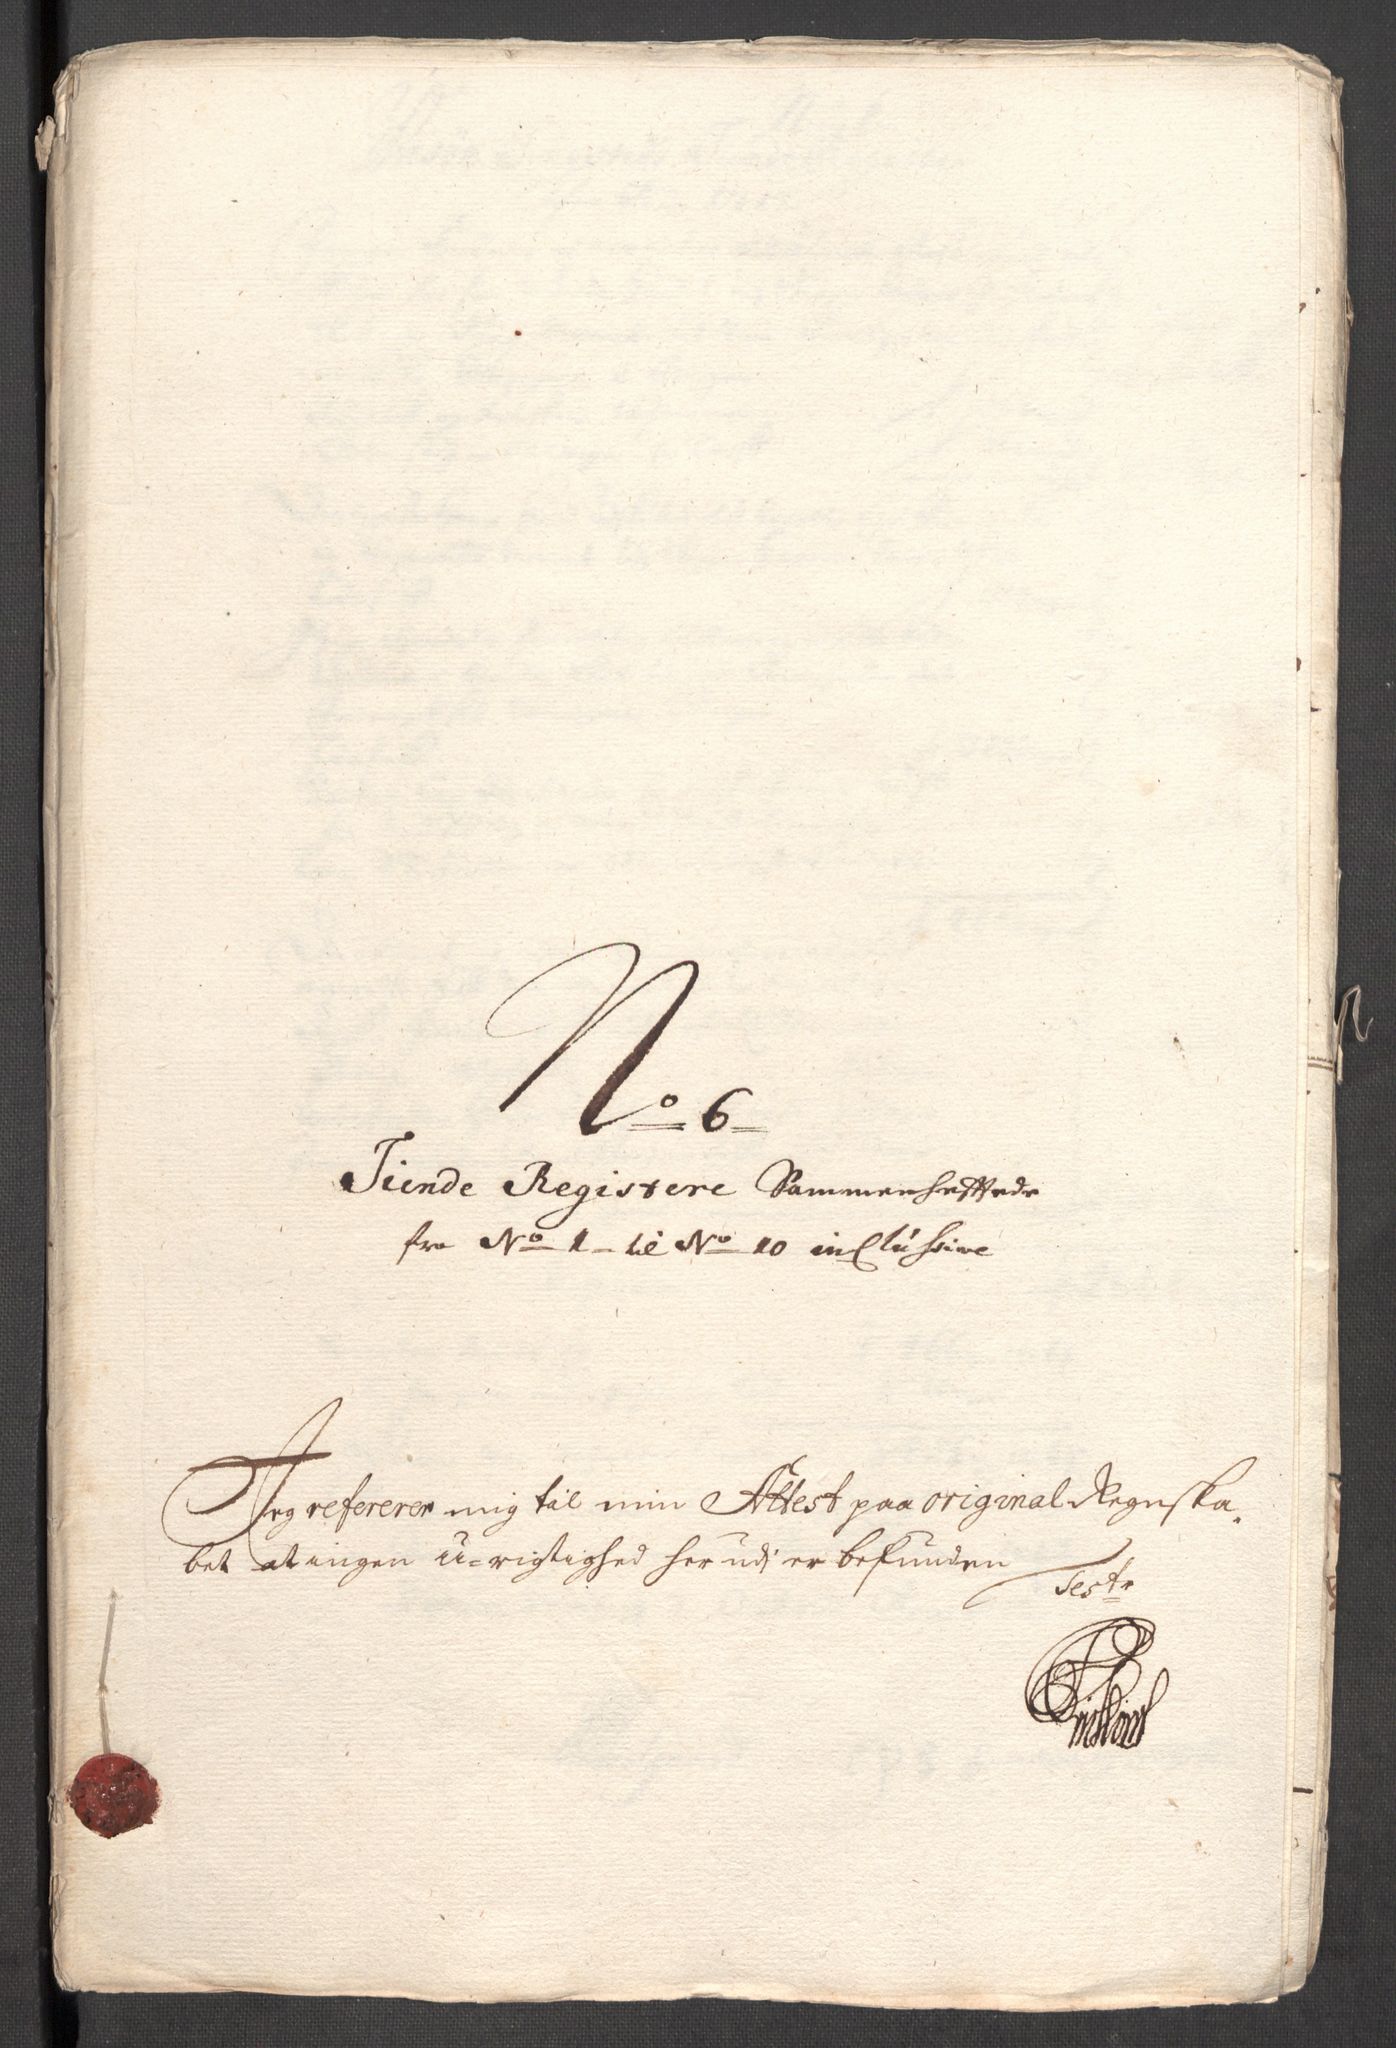 No 6
Tiende Registere Sammenhefftede
fra No 1 til No 10 inclussive
Jeg refererer mig til min Attest paa original Regnska,
bet at ingen u-rigtighed herudj er befunden
Test